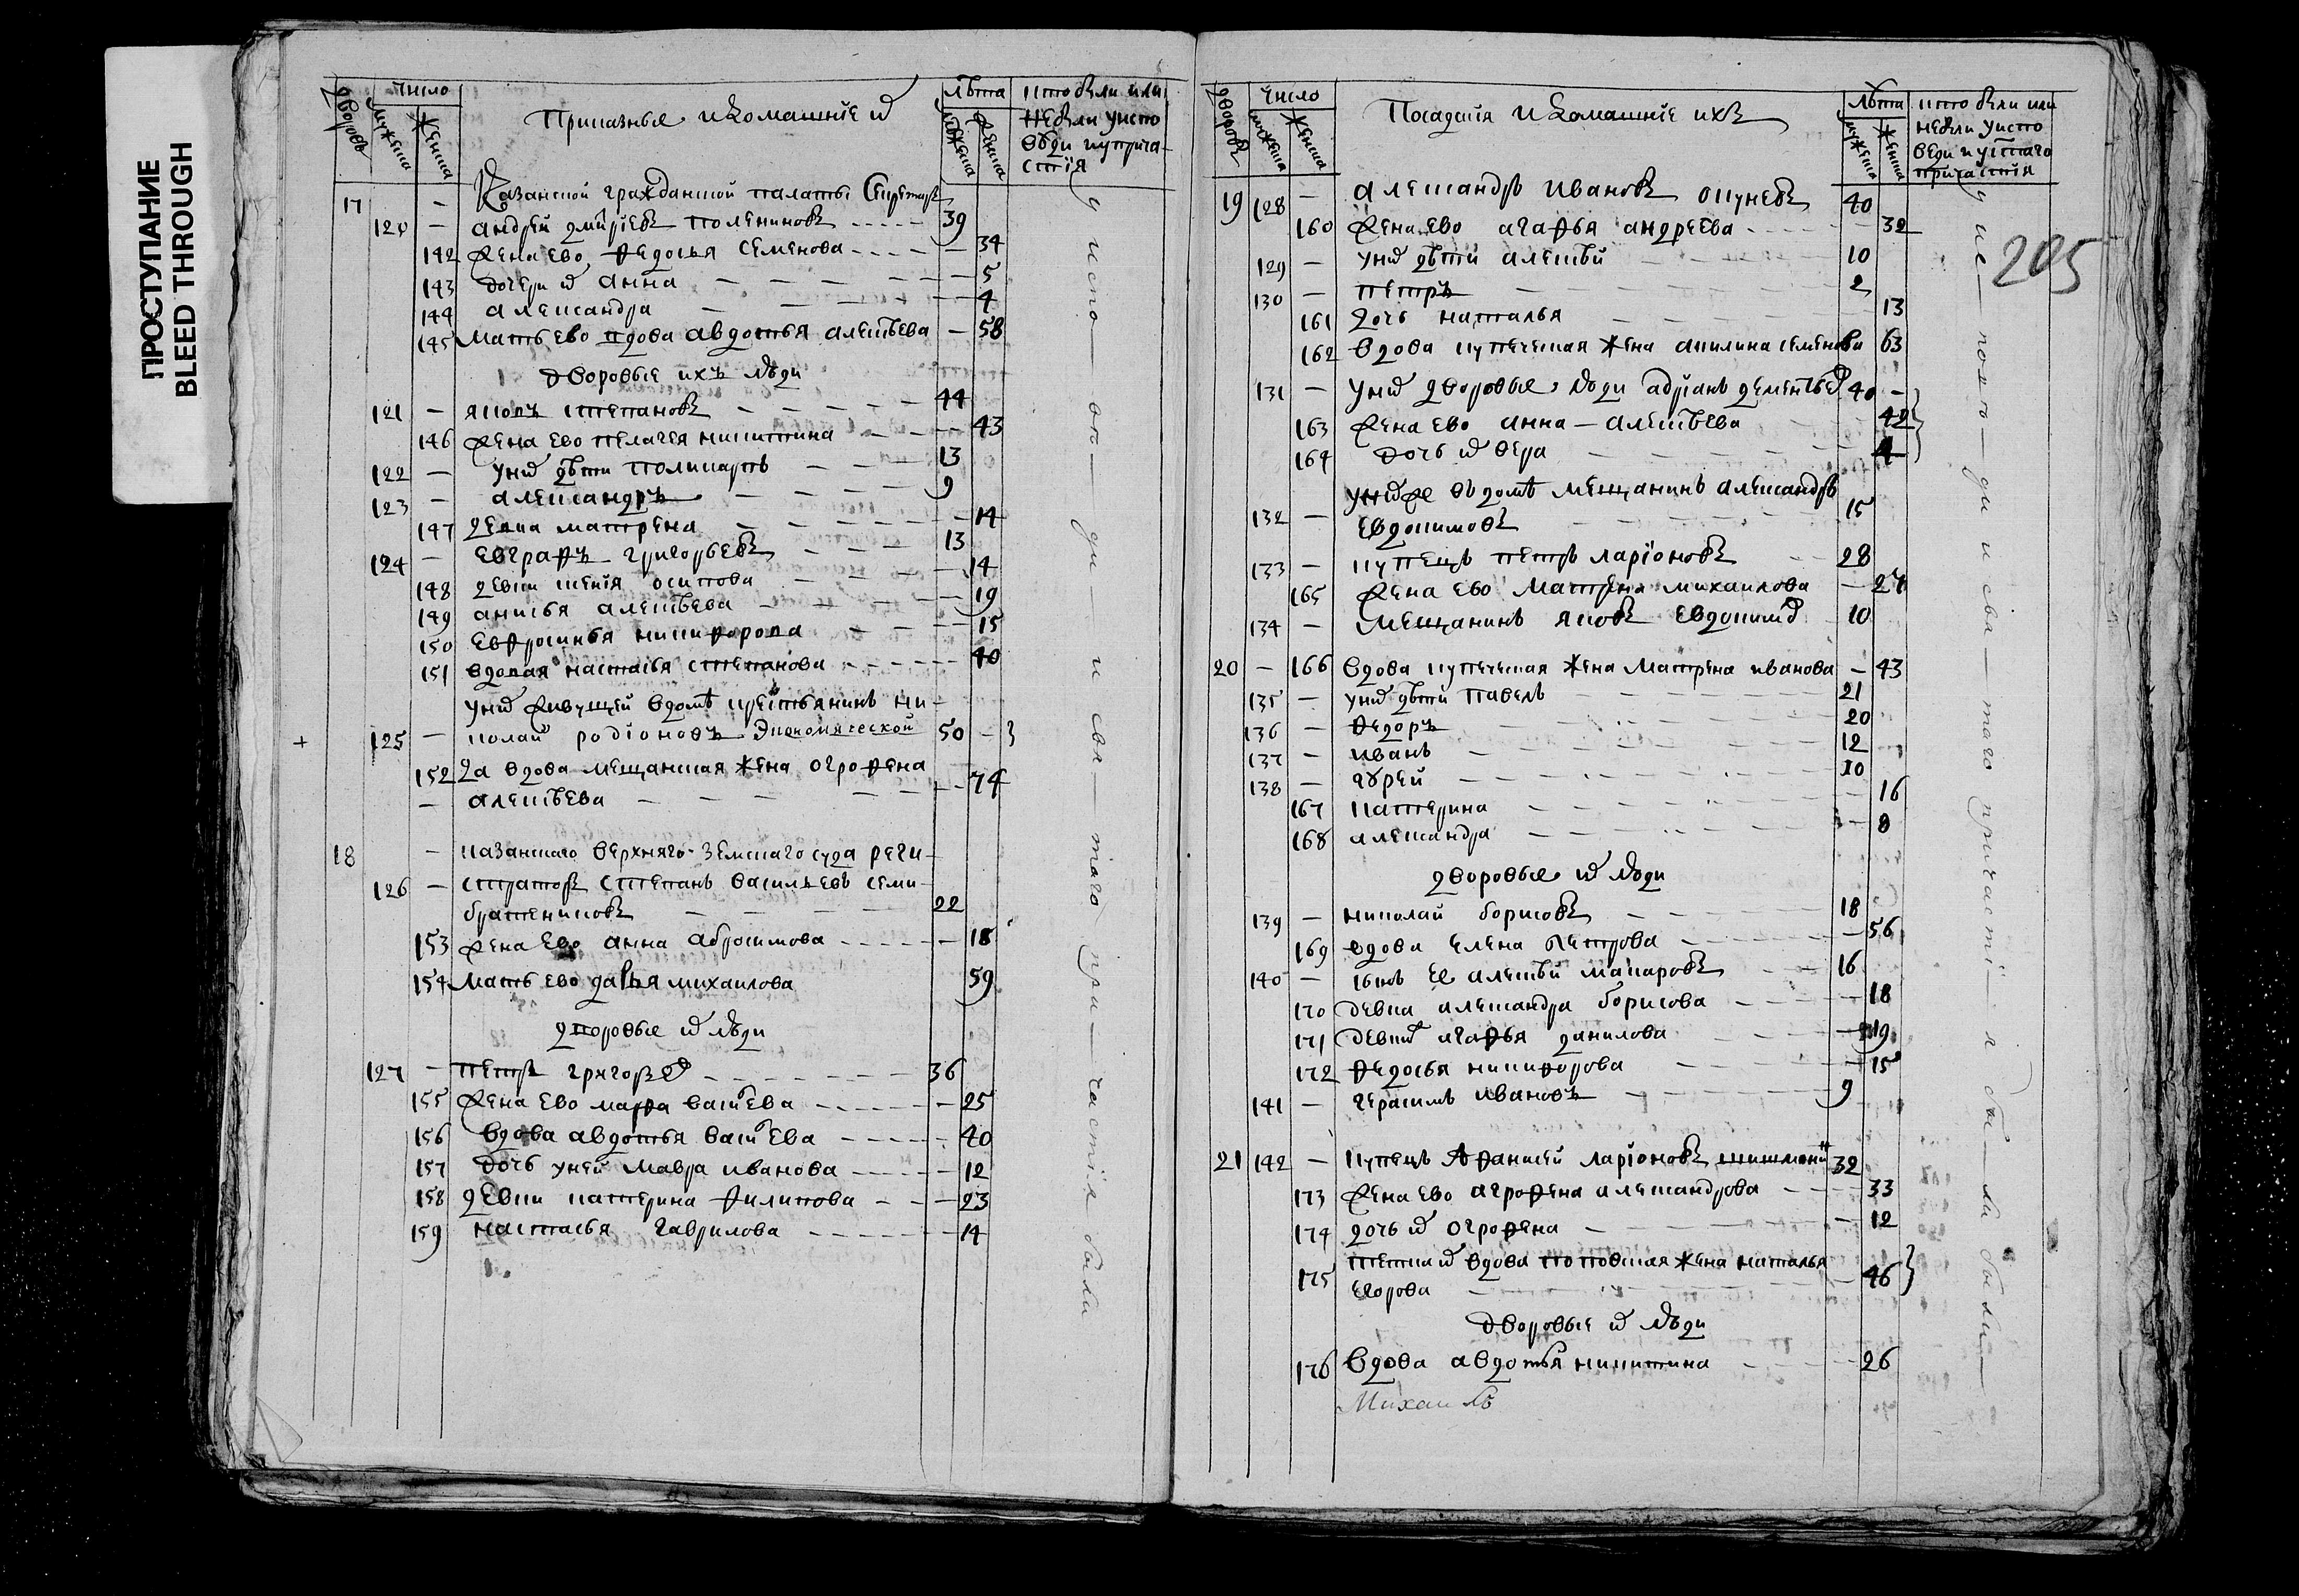 ПРОСТУПАНИЕ
BLEED THROUGH
дворовъ
число
мужеска
женска
Приказные и домашнїе их
лѣта
мужеска
женска
кто были или
не были у испо
веди и прича
стїя
17 — Казанской гражданской палаты Секретарь
120 — андрей дмитрїевъ полениновъ 39
142 жена ево федосья семенова — 34
143 дочери их анна — 5
144 александра — 4
145 мать ево вдова авдотья алексѣева — 58
дворовые ихъ люди
121 — яковъ степановъ 44
146 жена ево пелагея никитина 43
122 — у них дѣти поликарпъ 13
123 — александръ 9
147 девка матрена 14
124 — евграфъ григорьевъ 13
148 девки ксенїя осипова 14
149 анисья алексѣева 19
150 евфросинья никифорова 15
151 вдовая настасья степанова 40
у них живущей в домѣ крестьянинъ ни
125 — колай родїоновъ экономической 50 —
152 да вдова мещанская жена огрофена
— алексѣева 74
18 — казанскаго верхняго земскаго суда реги
126 — страторъ степанъ васильевъ семи
братениковъ 22
153 жена ево анна абросимова — 18
154 мать ево дарья михаилова 59
дворовые их люди
127 — петръ григорьев 36
155 жена ево марфа васильева — 25
156 вдова авдотья васильева — 40
157 дочь у ней мавра иванова — 12
158 девки катерина филипова — 23
159 настасья гаврилова — 14
у испо в — ди — и свя — таго при — частїя были
дворовъ
число
мужеска
женска
Посадскїя и домашнїе ихъ
лѣта
мужеска
женска
кто были или
не были у испо
веди и у святаго
причастїя
205
19 128 — александръ ивановъ окуневъ 40
160 жена ево агафья андреева — 32
129 — у них дѣти алексѣй 10
130 — петръ 2
161 дочь наталья 13
162 вдова купеческая жена акилина семенова 63
131 — у них дворовые люди адрїанъ дементьев 40 —
163 жена ево анна алексѣева 42
164 дочь их вера 4
у них же въ домѣ мещанинъ александръ
132 — евдокимовъ 15
133 — купецъ петръ ларїоновъ 28
165 жена ево матрена михаилова — 27
134 — мещанинъ яковъ евдокимов 10
20 — 166 вдова купеческая жена матрена иванова — 43
135 — у них дѣти павелъ 21
136 — федоръ 20
137 — иванъ 12
138 — гурей 10
167 катерина 16
168 александра 8
дворовые их люди
139 — николай борисовъ 18
169 вдова елена петрова — 56
140 — сынъ ее алексѣй макаровъ 16
170 девка александра борисова — 18
171 девки агафья данилова — 19
172 федосья никифорова 15
141 — герасимъ ивановъ 9
21 142 — купецъ Афанисей ларїоновъ 32
173 жена ево агрофена александрова 33
174 дочь их огрофена — 12
тетка их вдова поповская жена наталья
175 егорова — 46
дворовые их люди
176 вдова авдотья никитина — 26
Михаилъ